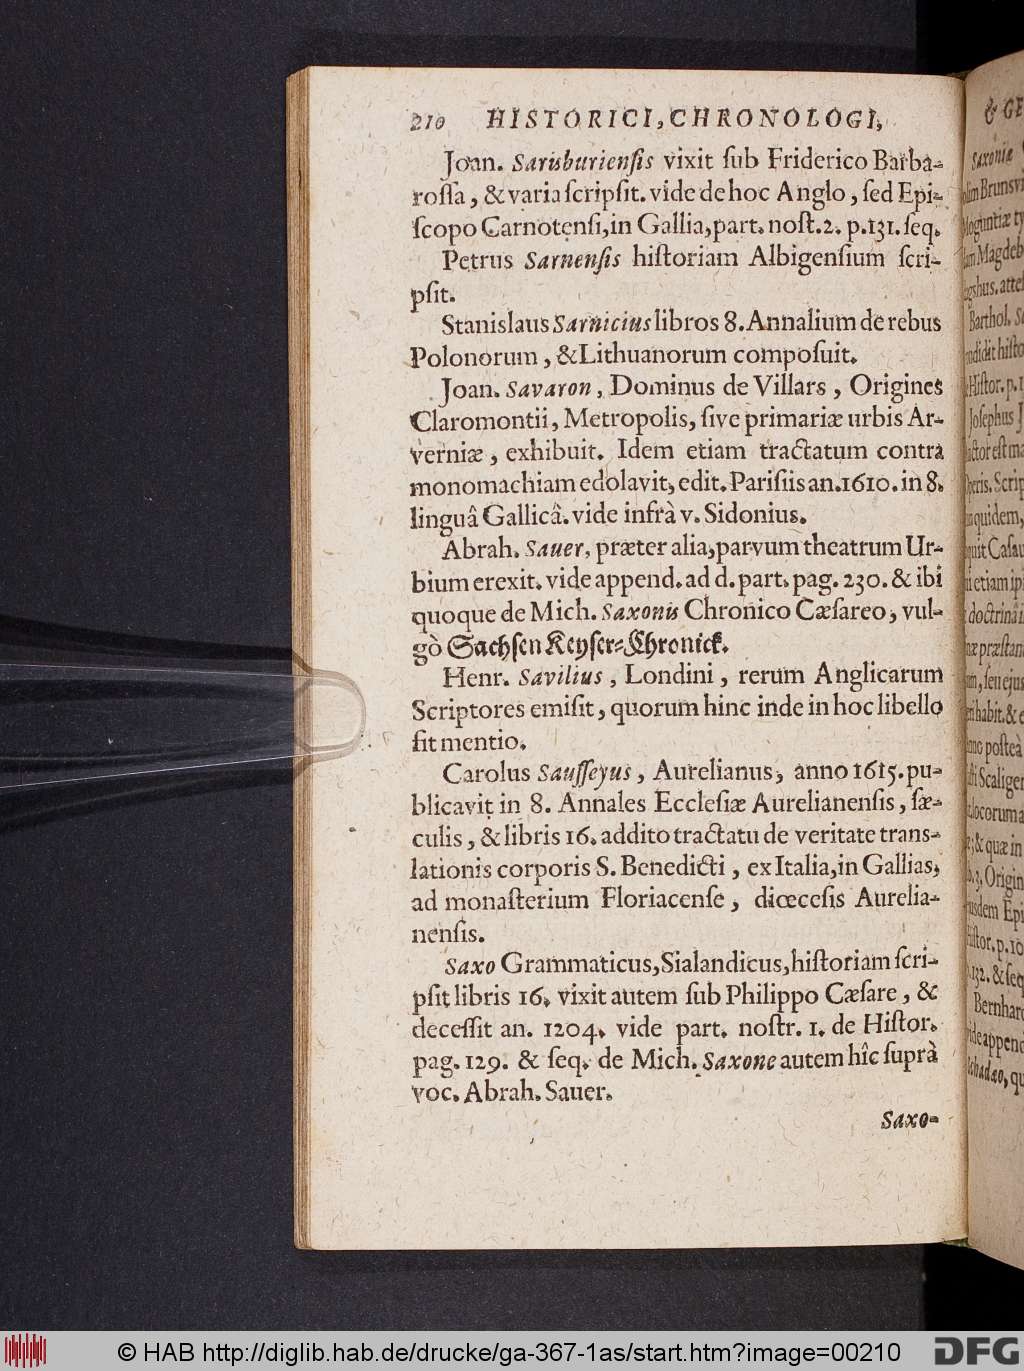 210 HISTORICI, CHRONOLOGI,
Joan. Sarisburiensis vixit ſub Friderico Barba-
roſſa, & varia ſcripſit. vide de hoc Anglo, ſed Epi-
ſcopo Carnotenſi, in Gallia, part. noſt. 2. p. 131. ſeq.
Petrus Sarnenſis hiſtoriam Albigenſium ſcri-
pſit.
Stanislaus Sarnicius libros 8. Annalium de rebus
Polonorum, & Lithuanorum compoſuit.
Joan. Savaron, Dominus de Villars, Origines
Claromontii, Metropolis, ſive primariæ urbis Ar-
verniæ, exhibuit. Idem etiam tractatum contra
monomachiam edolavit, edit. Pariſiis an. 1610. in 8.
linguâ Gallicâ. vide infrà v. Sidonius.
Abrah. Sauer, præter alia, parvum theatrum Ur-
bium erexit. vide append. ad d. part. pag. 230. & ibi
quoque de Mich. Saxonis Chronico Cæſareo, vul-
gò Sachſen Keyſer-Chronick.
Henr. Savilius, Londini, rerum Anglicarum
Scriptores emiſit, quorum hinc inde in hoc libello
fit mentio.
Carolus Sauſſeyus, Aurelianus, anno 1615. pu-
blicavit in 8. Annales Eccleſiæ Aurelianenſis, ſæ-
culis, & libris 16. addito tractatu de veritate trans-
lationis corporis S. Benedicti, ex Italia, in Gallias,
ad monaſterium Floriacenſe, diœceſis Aurelia-
nenſis.
Saxo Grammaticus, Sialandicus, hiſtoriam ſcri-
pſit libris 16. vixit autem ſub Philippo Cæſare, &
deceſſit an. 1204. vide part. noſtr. 1. de Hiſtor.
pag. 129. & ſeq. de Mich. Saxone autem hîc ſuprà
voc. Abrah. Sauer.
Saxo-
& GE
Saxoniæ
Barthol.
Hiſtor. p. 1
Joſephus
quidem,
etiam ipſ
doctrinâ i
habit. & e
poſteà
Scaliger
& quæ in
Origin
Epi
p. 10
132. & ſeq
Bernhard
© HAB http://diglib.hab.de/drucke/ga-367-1as/start.htm?image=00210
DFG